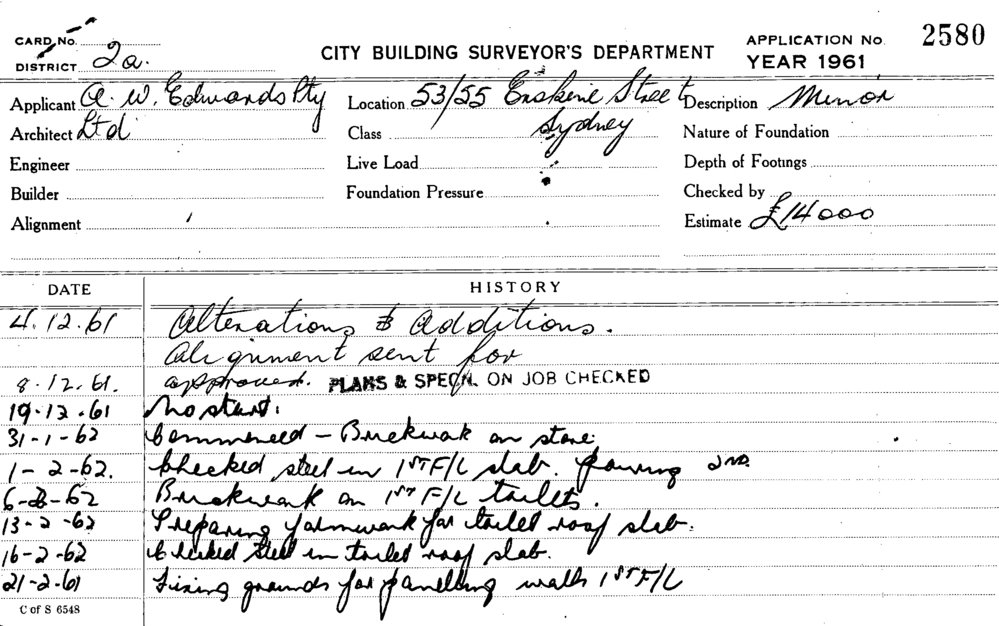 CARD No.
DISTRICT 2a.
CITY BUILDING SURVEYOR'S DEPARTMENT
APPLICATION No. 2580
YEAR 1961
Applicant A. W. Edwards Pty
Location 53/55 Erskine Street
Description Minor
Architect Ltd
Class Sydney
Nature of Foundation
Engineer
Live Load
Depth of Footings
Builder
Foundation Pressure
Checked by
Alignment
Estimate £14000
DATE HISTORY
4.12.61 Alterations & Additions.
Alignment sent for
8.12.61. approved. PLANS & SPECN. ON JOB CHECKED
19.12.61 No start.
31-1-62 Commenced - Brickwork on store
1-2-62. Checked steel in 1ST F/L slab. pouring 2nd.
6-2-62 Brickwork on 1ST F/L toilets.
13-2-62 Preparing formwork for toilet roof slab.
16-2-62 Checked steel in toilet roof slab.
21-2-61 Fixing grounds for panelling walls 1ST F/L
C of S 6548